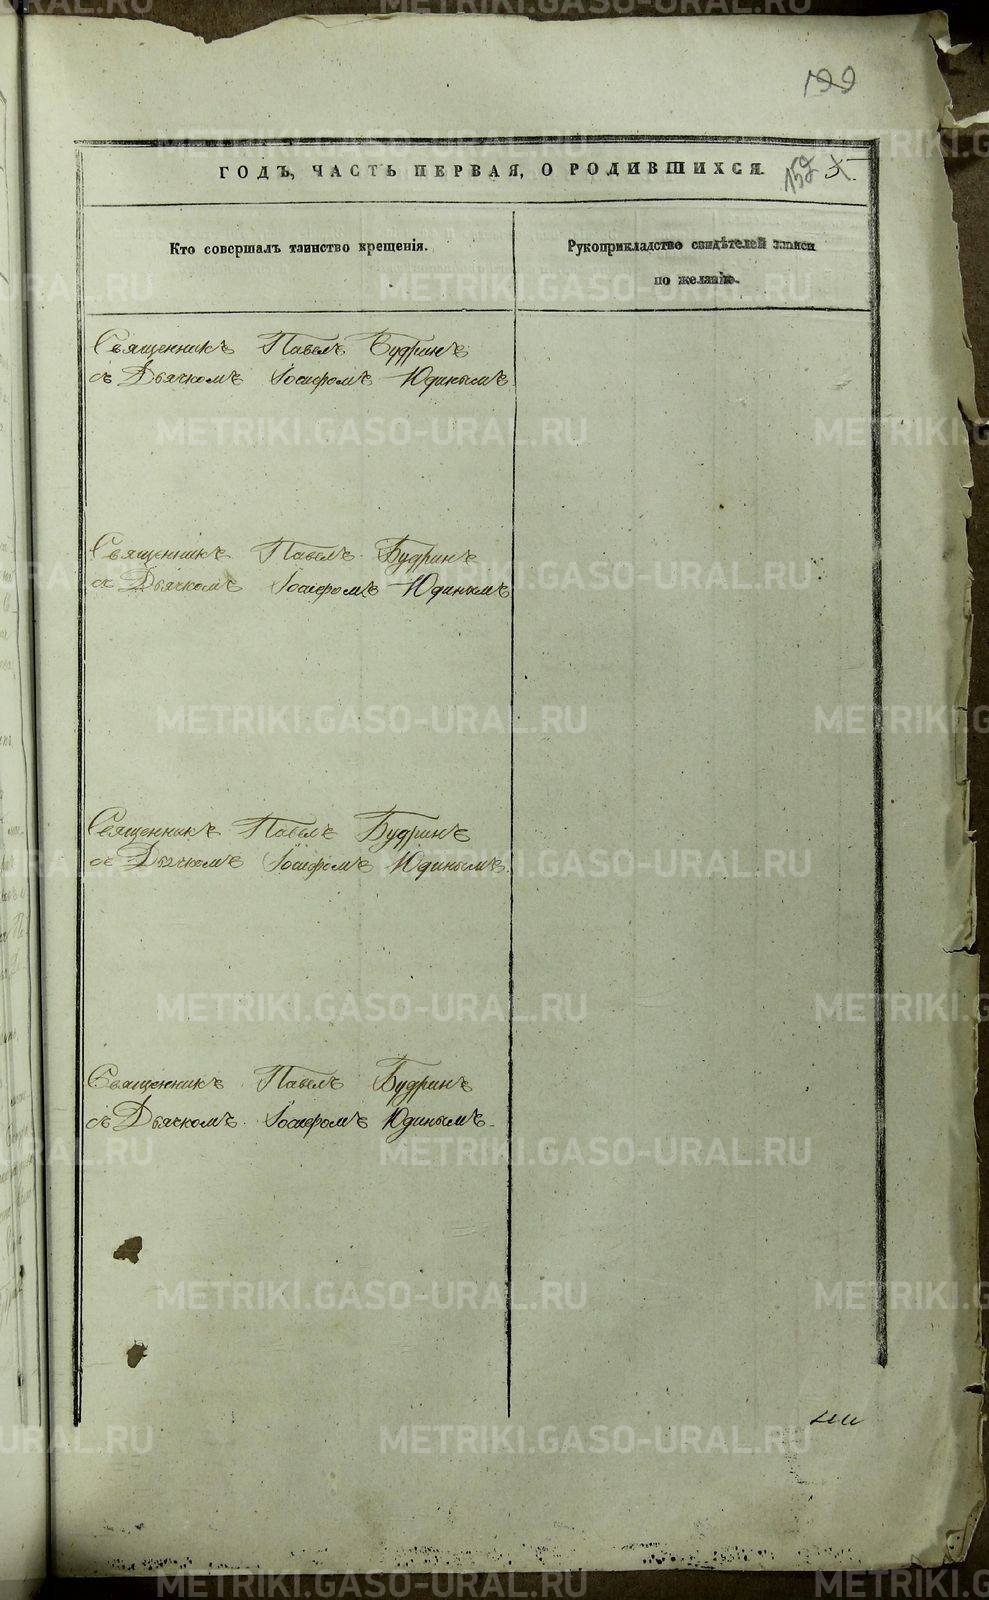 199
ГОДЪ, ЧАСТЬ ПЕРВАЯ, О РОДИВШИХСЯ.
Кто совершалъ таинство крещенія.
Рукоприкладство свидѣтелей записи
по желанію.
Священникъ Павелъ Будринъ
съ Дьячкомъ Іосифомъ Юдинымъ
Священникъ Павелъ Будринъ
съ Дьячкомъ Іосифомъ Юдинымъ
Священникъ Павелъ Будринъ
съ Дьячкомъ Іосифомъ Юдинымъ.
Священникъ Павелъ Будринъ
съ Дьячкомъ Іосифомъ Юдинымъ.
METRIKI.GASO-URAL.RU